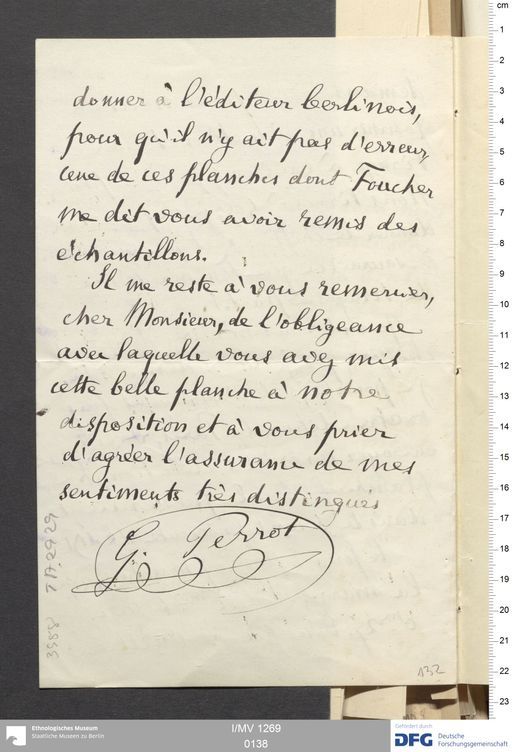 donner à l'éditeur berlinois,
pour qu'il n'y ait pas d'erreur,
une de ces planches dont Foucher
me dit vous avoir remis des
échantillons.
Il me reste à vous remercier,
cher Monsieur, de l'obligeance
avec laquelle vous avez mis
cette belle planche à notre
disposition et à vous prier
d'agréer l'assurance de mes
sentiments très distingués
G. Perrot
132
Ethnologisches Museum
Staatliche Museen zu Berlin
I/MV 1269
0138
Gefördert durch
DFG Deutsche
Forschungsgemeinschaft
cm
1
2
3
4
5
6
7
8
9
10
11
12
13
14
15
16
17
18
19
20
21
22
23